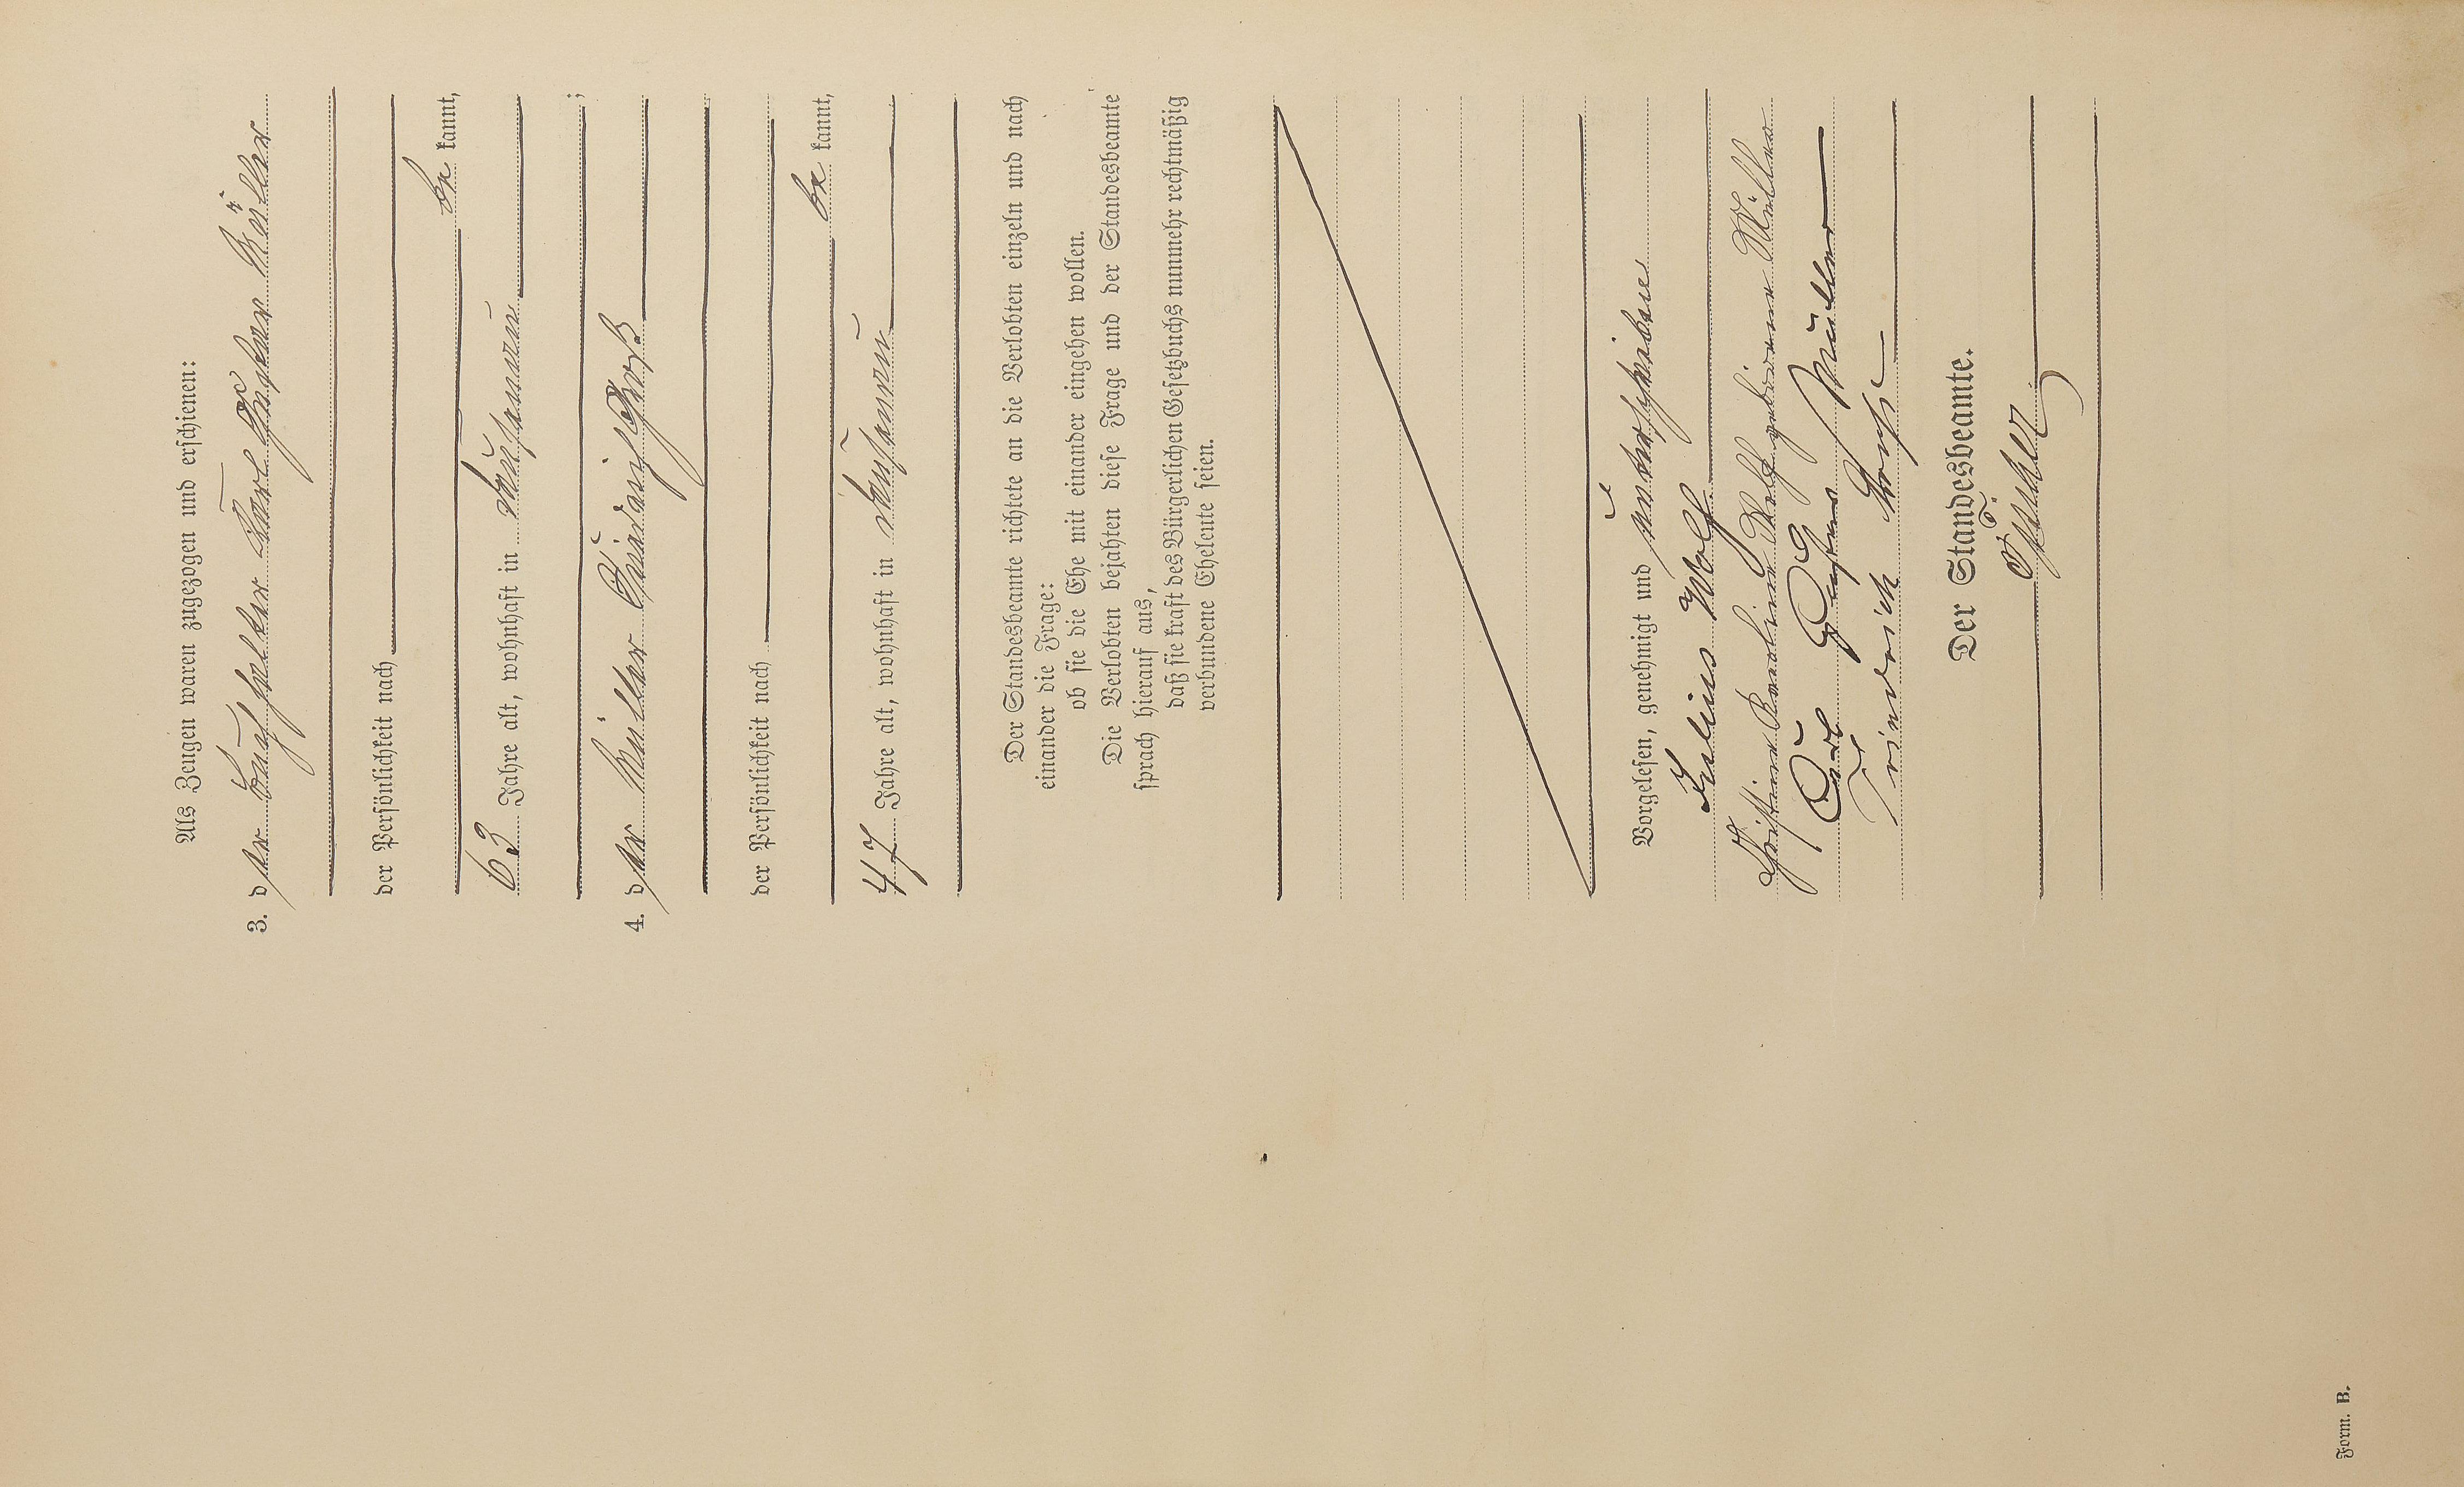 Als Zeugen waren zugezogen und erschienen:
3. der Buchhalter Karl Gustav Müller
der Persönlichkeit nach
be kannt,
63 Jahre alt, wohnhaft in
;
4. der Müller Friedrich
der Persönlichkeit nach
be kannt,
47 Jahre alt, wohnhaft in
Der Standesbeamte richtete an die Verlobten einzeln und nach
einander die Frage:
ob sie die Ehe mit einander eingehen wollen.
Die Verlobten bejahten diese Frage und der Standesbeamte
sprach hierauf aus,
daß sie kraft des Bürgerlichen Gesetzbuchs nunmehr rechtmäßig
verbundene Eheleute seien.
Vorgelesen, genehmigt und unterschrieben
Julius Wolf
Christine Karoline Wolf geborene Müller
Carl Gustav Müller
Friedrich
Der Standesbeamte.
Form. B.